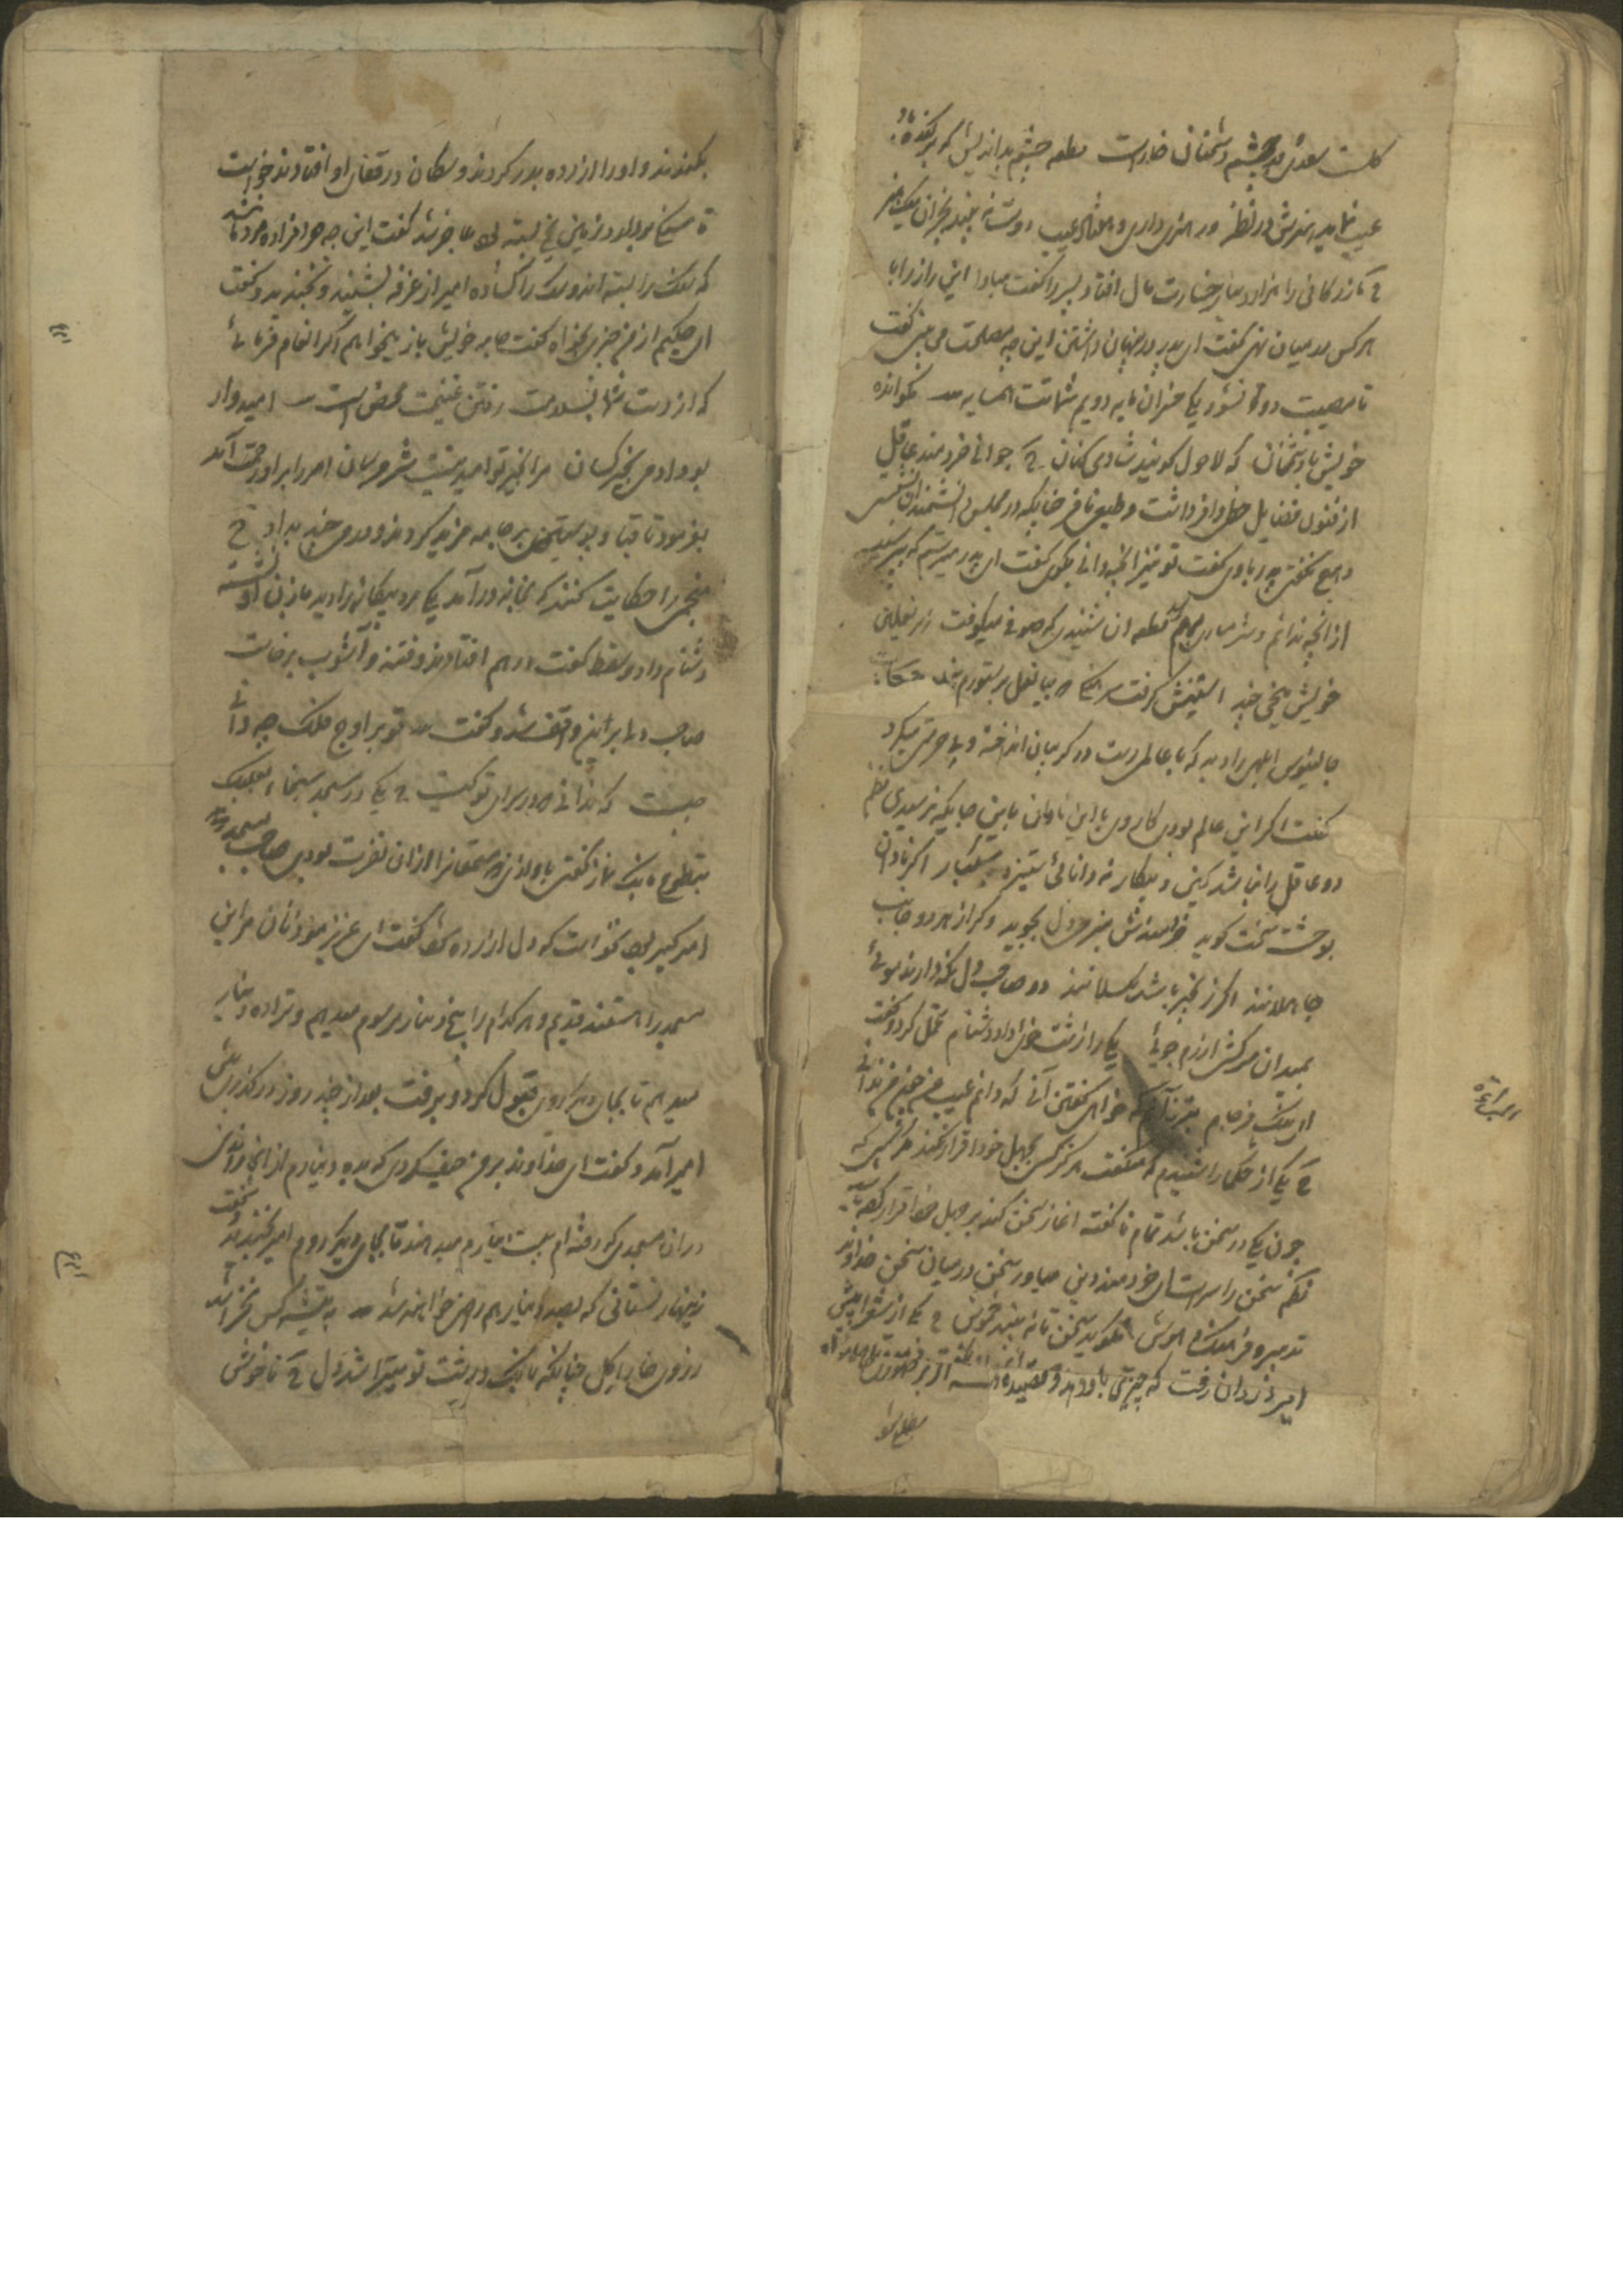 گلست سعدی و در چشم دشمنان خارست قطعه چشم بداندیش که برکنده باد
عیب نماید هنرش در نظر ور هنری داری و هفتاد عیب دوست نه بیند بجز آن یک هنر
ح بازرگانی را هزار دینار خسارت مال افتاد پسر را گفت مباد این راز را با
هر کس در میان نهی گفت ای پدر در نهان داشتن این چه مصلحت می بینی گفت
تا مصیبت دو نشود یکی خسران مایه دویم شماتت همسایه مگو اندوه
خویش با دشمنان که لاحول گویند شادی کنان ح جوانی خردمند عاقل
از فنون فضایل حظی وافر داشت و طبعی نافر چنانکه در مجلس دانشمندان نشستی
هیچ نگفتی پدر باوی گفت تو نیز آنچه دانی بگوی گفت ای پدر میترسم که بپرسند
از آنچه ندانم و شرمساری برم قطعه آن شنیدی که صوفی میکوفت زیر نعلین
خویش میخی چند آستینش گرفت سرهنگی که بیا نعل بر ستورم بند حکایت
جالینوس ابلهی را دید که با عالمی دست در گریبان انداخته و بی حرمتی میکرد
گفت اگر این عالم بودی کار وی با این نادان باین جایگه نرسیدی نظم
دو عاقل را نباشد کین و پیکار نه دانائی ستیزد با سبکبار اگر نادان
بوحشت سخت گوید خردمندش بنرمی دل بجوید وگر از هر دو جانب
جاهلانند اگر زنجیر باشد بگسلانند دو صاحب دل نگه دارند موئی
همیدان سرکش آزرم جوئی یکی را زشت خوئی داد دشنام تحمل کرد و گفت
ای نیک فرجام بتر زانم که خواهی گفتن آنی که دانم عیب من چون من ندانی
ح یکی از حکما را شنیدم که میگفت هرگز کسی بجهل خود اقرار نکند مگر کسی که
چون یکی در سخن باشد تمام ناگفته آغاز سخن کند بر جهل خود اقرار کرده باشد
نظم سخن را سر است ای خردمند و بن میاور سخن در میان سخن خداوند
تدبیر و فرهنگ و هوش نگوید سخن تا نه بیند خموش ح یکی از شعرا پیش
امیر دزدان رفت که چیزی باو دهد و قصیده
مطلع شو
بکندند و او را از ده بدر کردند و سگان در قفای او افتادند خواست
تا سنگی بردارد زمین یخ بسته بود عاجز شد گفت این چه حرامزاده مردمانند
که سنگ را بسته اند و سگ را گشاده امیر از غرفه بشنید و بخندید و گفت
ای حکیم از من چیزی بخواه گفت جامه خویش باز میخواهم اگر انعام فرمائی
که از دست شما بسلامت رفتن غنیمت محض است امیدوار
بود آدمی بخیر کسان مرا بخیر تو امید نیست شر مرسان امیر را بر او رحمت آمد
بفرمود تا قبا و پوستین بر جامه مزید کردند و درمی چند بداد ح
منجمی را حکایت کنند که بخانه درآمد یکی مرد بیگانه را دید با زن او نشسته
دشنام داد و سقط گفت درهم افتادند و فتنه و آشوب برخاست
صاحب دلی برین واقف شد و گفت تو بر اوج فلک چه دانی
چیست که ندانی که در سرای تو کیست ح یکی در مسجد سنجار
بتطوع بانک نماز گفتی باوازی که مستمعانرا از آن نفرت بودی صاحب مسجد
امیر کبیر بود نخواست که دل آزرده شود گفت ای عزیز مؤذنان مر این
مسجد را هستند قدیم و هر کدام را پنج دینار مرسوم میدهم و ترا ده دینار
میدهم تا بجای دیگر روی قبول کرد و برفت بعد از چند روز در گذری پیش
امیر آمد و گفت ای خداوند بر من حیف کردی که بده دینارم از اینجا راندی
در آن مسجدی که رفته ام بیست دینارم میدهند تا بجای دیگر روم امیر بخندید و گفت
زینهار نستانی که بصد دینار هم راضی خواهند شد به تیشه کس نخراشد
ز روی خارا گل چنانکه بانک درشت تو میخراشد دل ح ناخوش